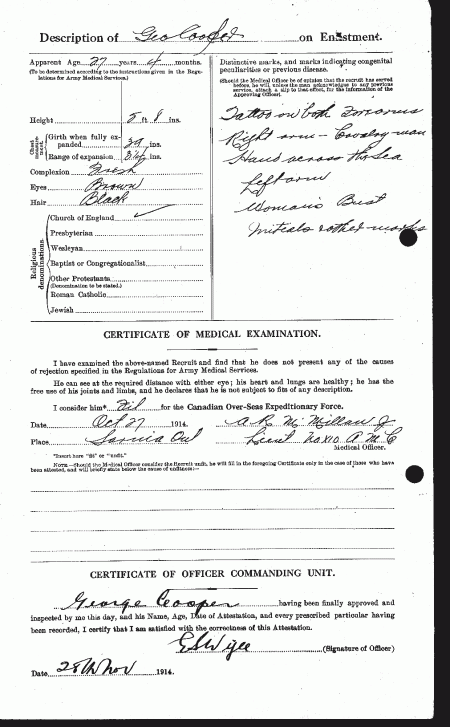 Description of Geo Cooper on Enlistment.
Apparent Age 27 years 4 months.
(To be determined according to the instructions given in the Regu-
lations for Army Medical Services.)
Height 5 ft 8 ins.
Chest measurement
Girth when fully ex-
panded 39 ins.
Range of expansion 3½ ins.
Complexion Fresh
Eyes Brown
Hair Black
Religious denominations
Church of England
Presbyterian
Wesleyan
Baptist or Congregationalist
Other Protestants
(Denomination to be stated.)
Roman Catholic
Jewish
Distinctive marks, and marks indicating congenital
peculiarities or previous disease.
(Should the Medical Officer be of opinion that the recruit has served
before, he will, unless the man acknowledges to any previous
service, attach a slip to that effect, for the information of the
Approving Officer).
Tattoo on both forearms
Right arm - Cavalry man
Hand across the Sea
Left arm
Woman's Bust
Initials & other marks
CERTIFICATE OF MEDICAL EXAMINATION.
I have examined the above-named Recruit and find that he does not present any of the causes
of rejection specified in the Regulations for Army Medical Services.
He can see at the required distance with either eye; his heart and lungs are healthy; he has the
free use of his joints and limbs, and he declares that he is not subject to fits of any description.
I consider him* Fit for the Canadian Over-Seas Expeditionary Force.
Date Oct 27 1914.
Place Sarnia Ont
Lieut
A M C
Medical Officer.
*Insert here "fit" or "unfit."
NOTE.—Should the Medical Officer consider the Recruit unfit, he will fill in the foregoing Certificate only in the case of those who have
been attested, and will briefly state below the cause of unfitness:—
CERTIFICATE OF OFFICER COMMANDING UNIT.
George Cooper having been finally approved and
inspected by me this day, and his Name, Age, Date of Attestation, and every prescribed particular having
been recorded, I certify that I am satisfied with the correctness of this Attestation.
(Signature of Officer)
Date 28th Nov 1914.